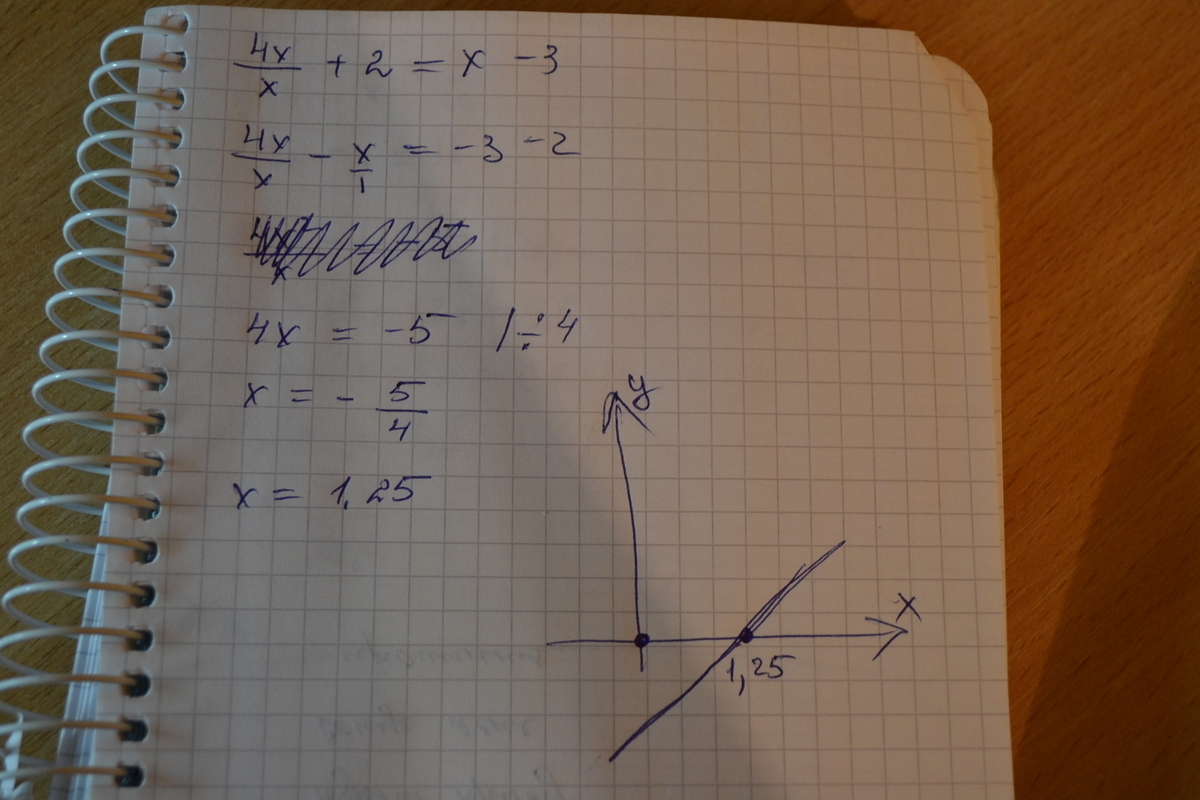 4x/x + 2 = x - 3
4x/x - x/1 = -3 -2
4x = -5 /÷4
x = - 5/4
x = 1,25
y
x
1,25